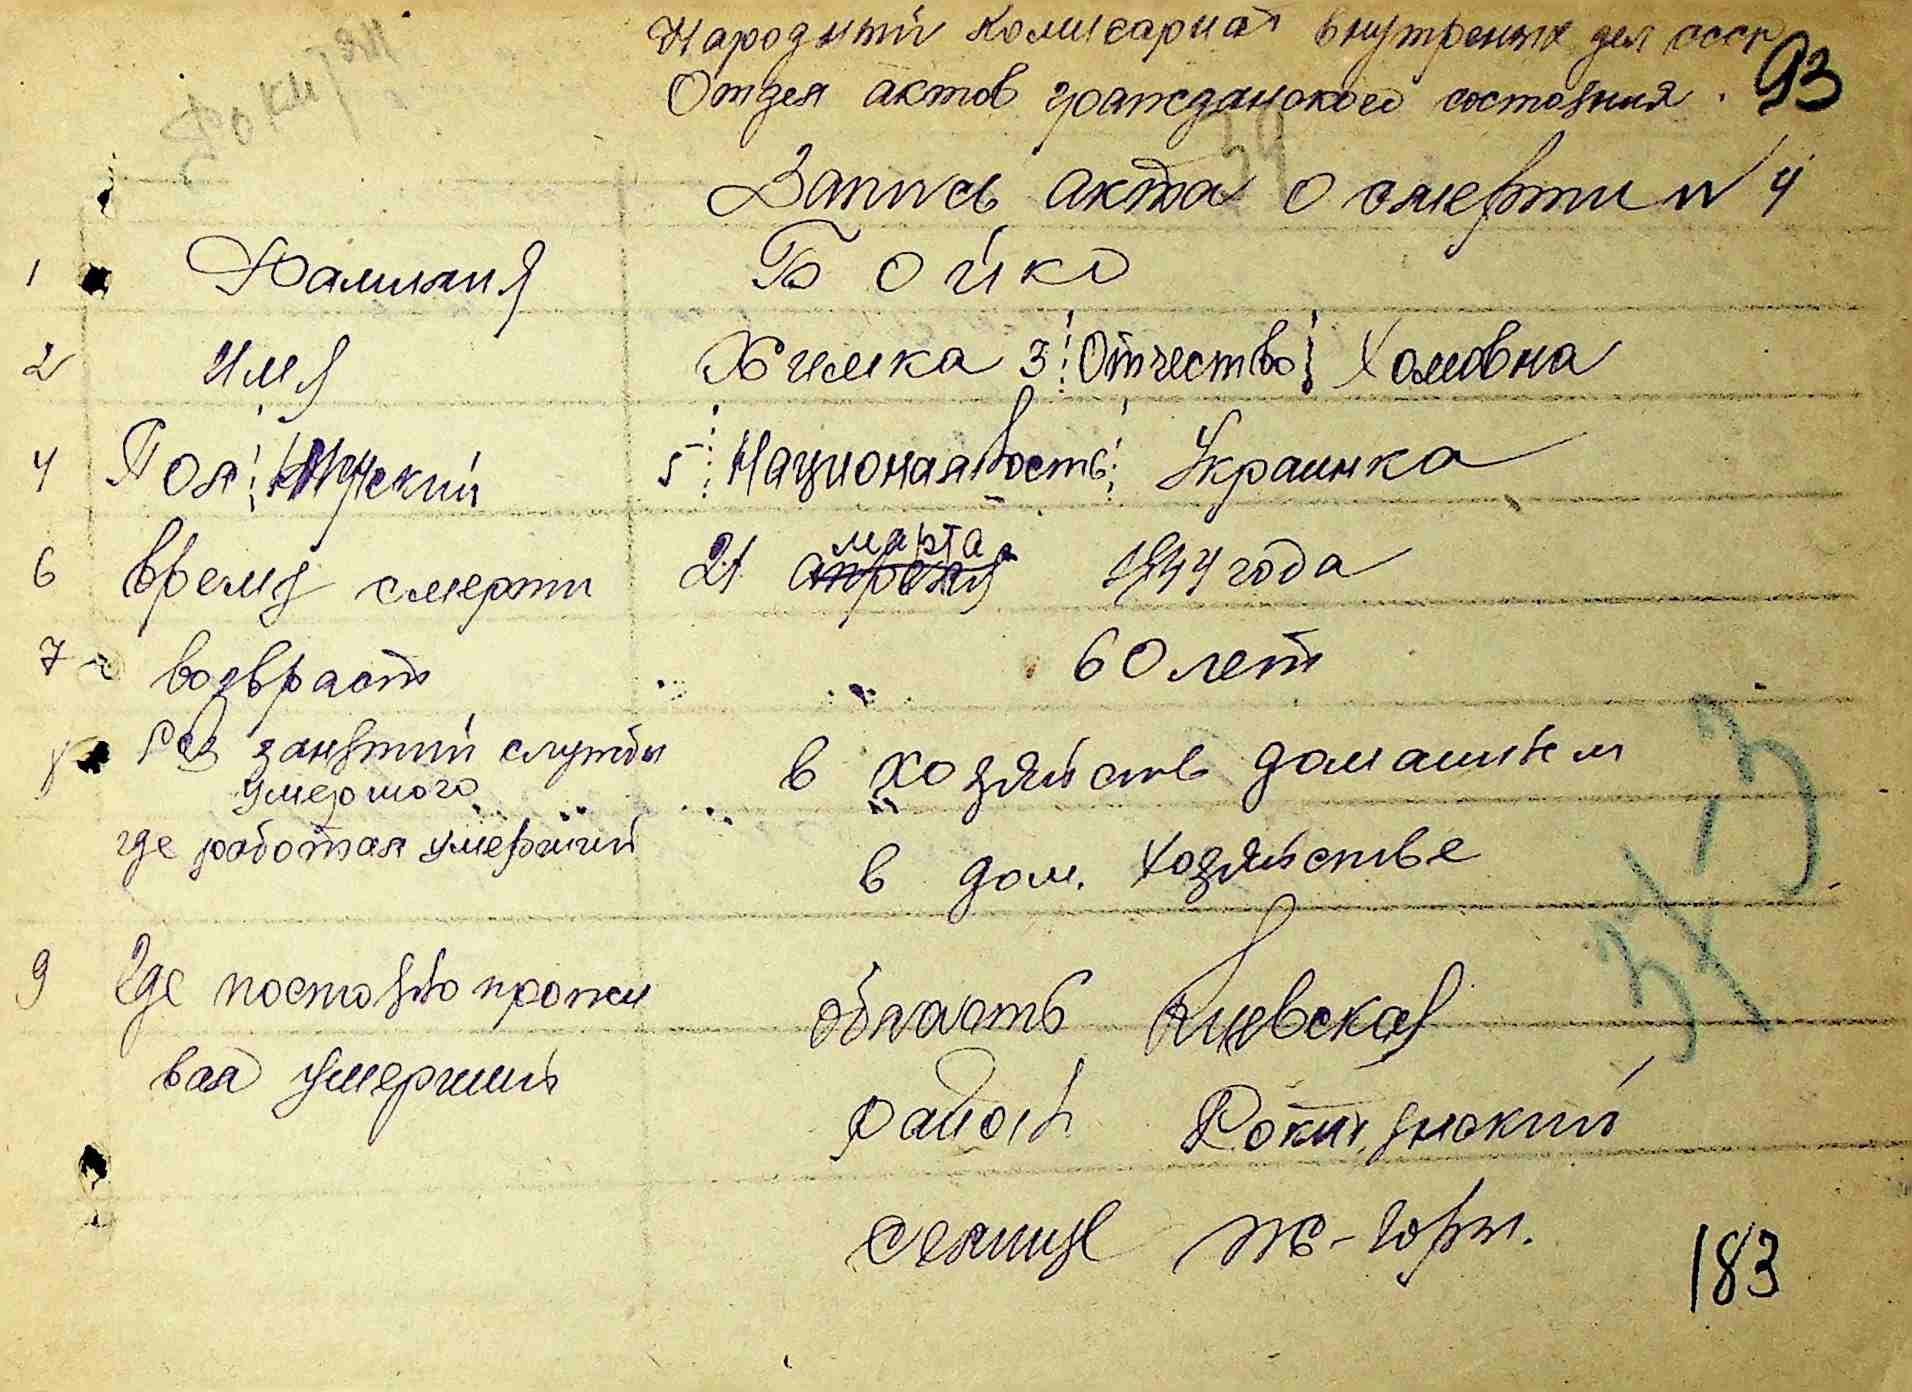 Народный Комисариат внутреных дел СССР
Отдел актов гражданского состояния.
93
34
Запись акта о смерти N 4
1 Фамилия Бойко
2 Имя Химка 3 Отчество Хомовна
4 Пол Женский 5 Национальность Украинка
марта
6 Время смерти 21 апреля 1944 года
7 возвраст 60 лет
8 Род занятий службы в хозяйстве домашнем
умершого
где работал умерший в дом. хозяйстве
9 Где постоянно прожи область Киевская
вал умерший
район Рокитнянский
селище
183